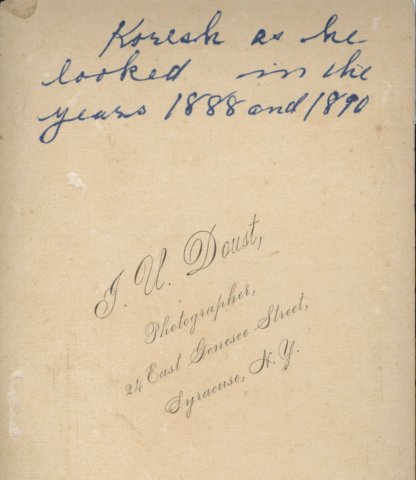 Koresh as he
looked in the
years 1888 and 1890
I. U. Doust,
Photographer,
24 East Genesee Street,
Syracuse, N.Y.